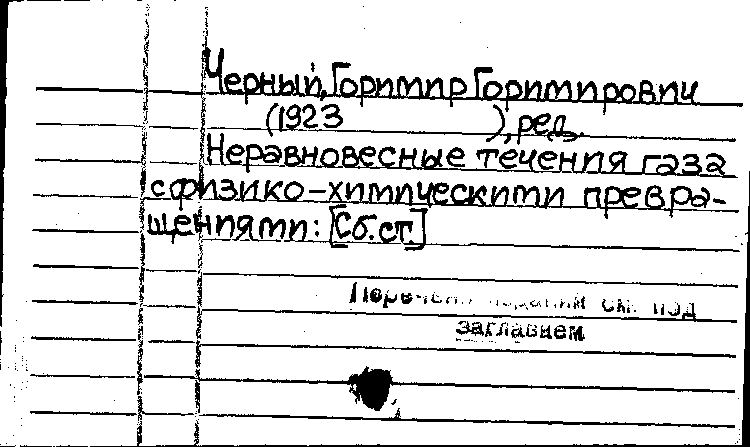 Черный, Горимир Горимирович
(1923 ), ред.
Неравновесные течения газа
с физико-химическими превра-
щениями: [Сб. ст.]
Перечень изданий см. под
заглавием